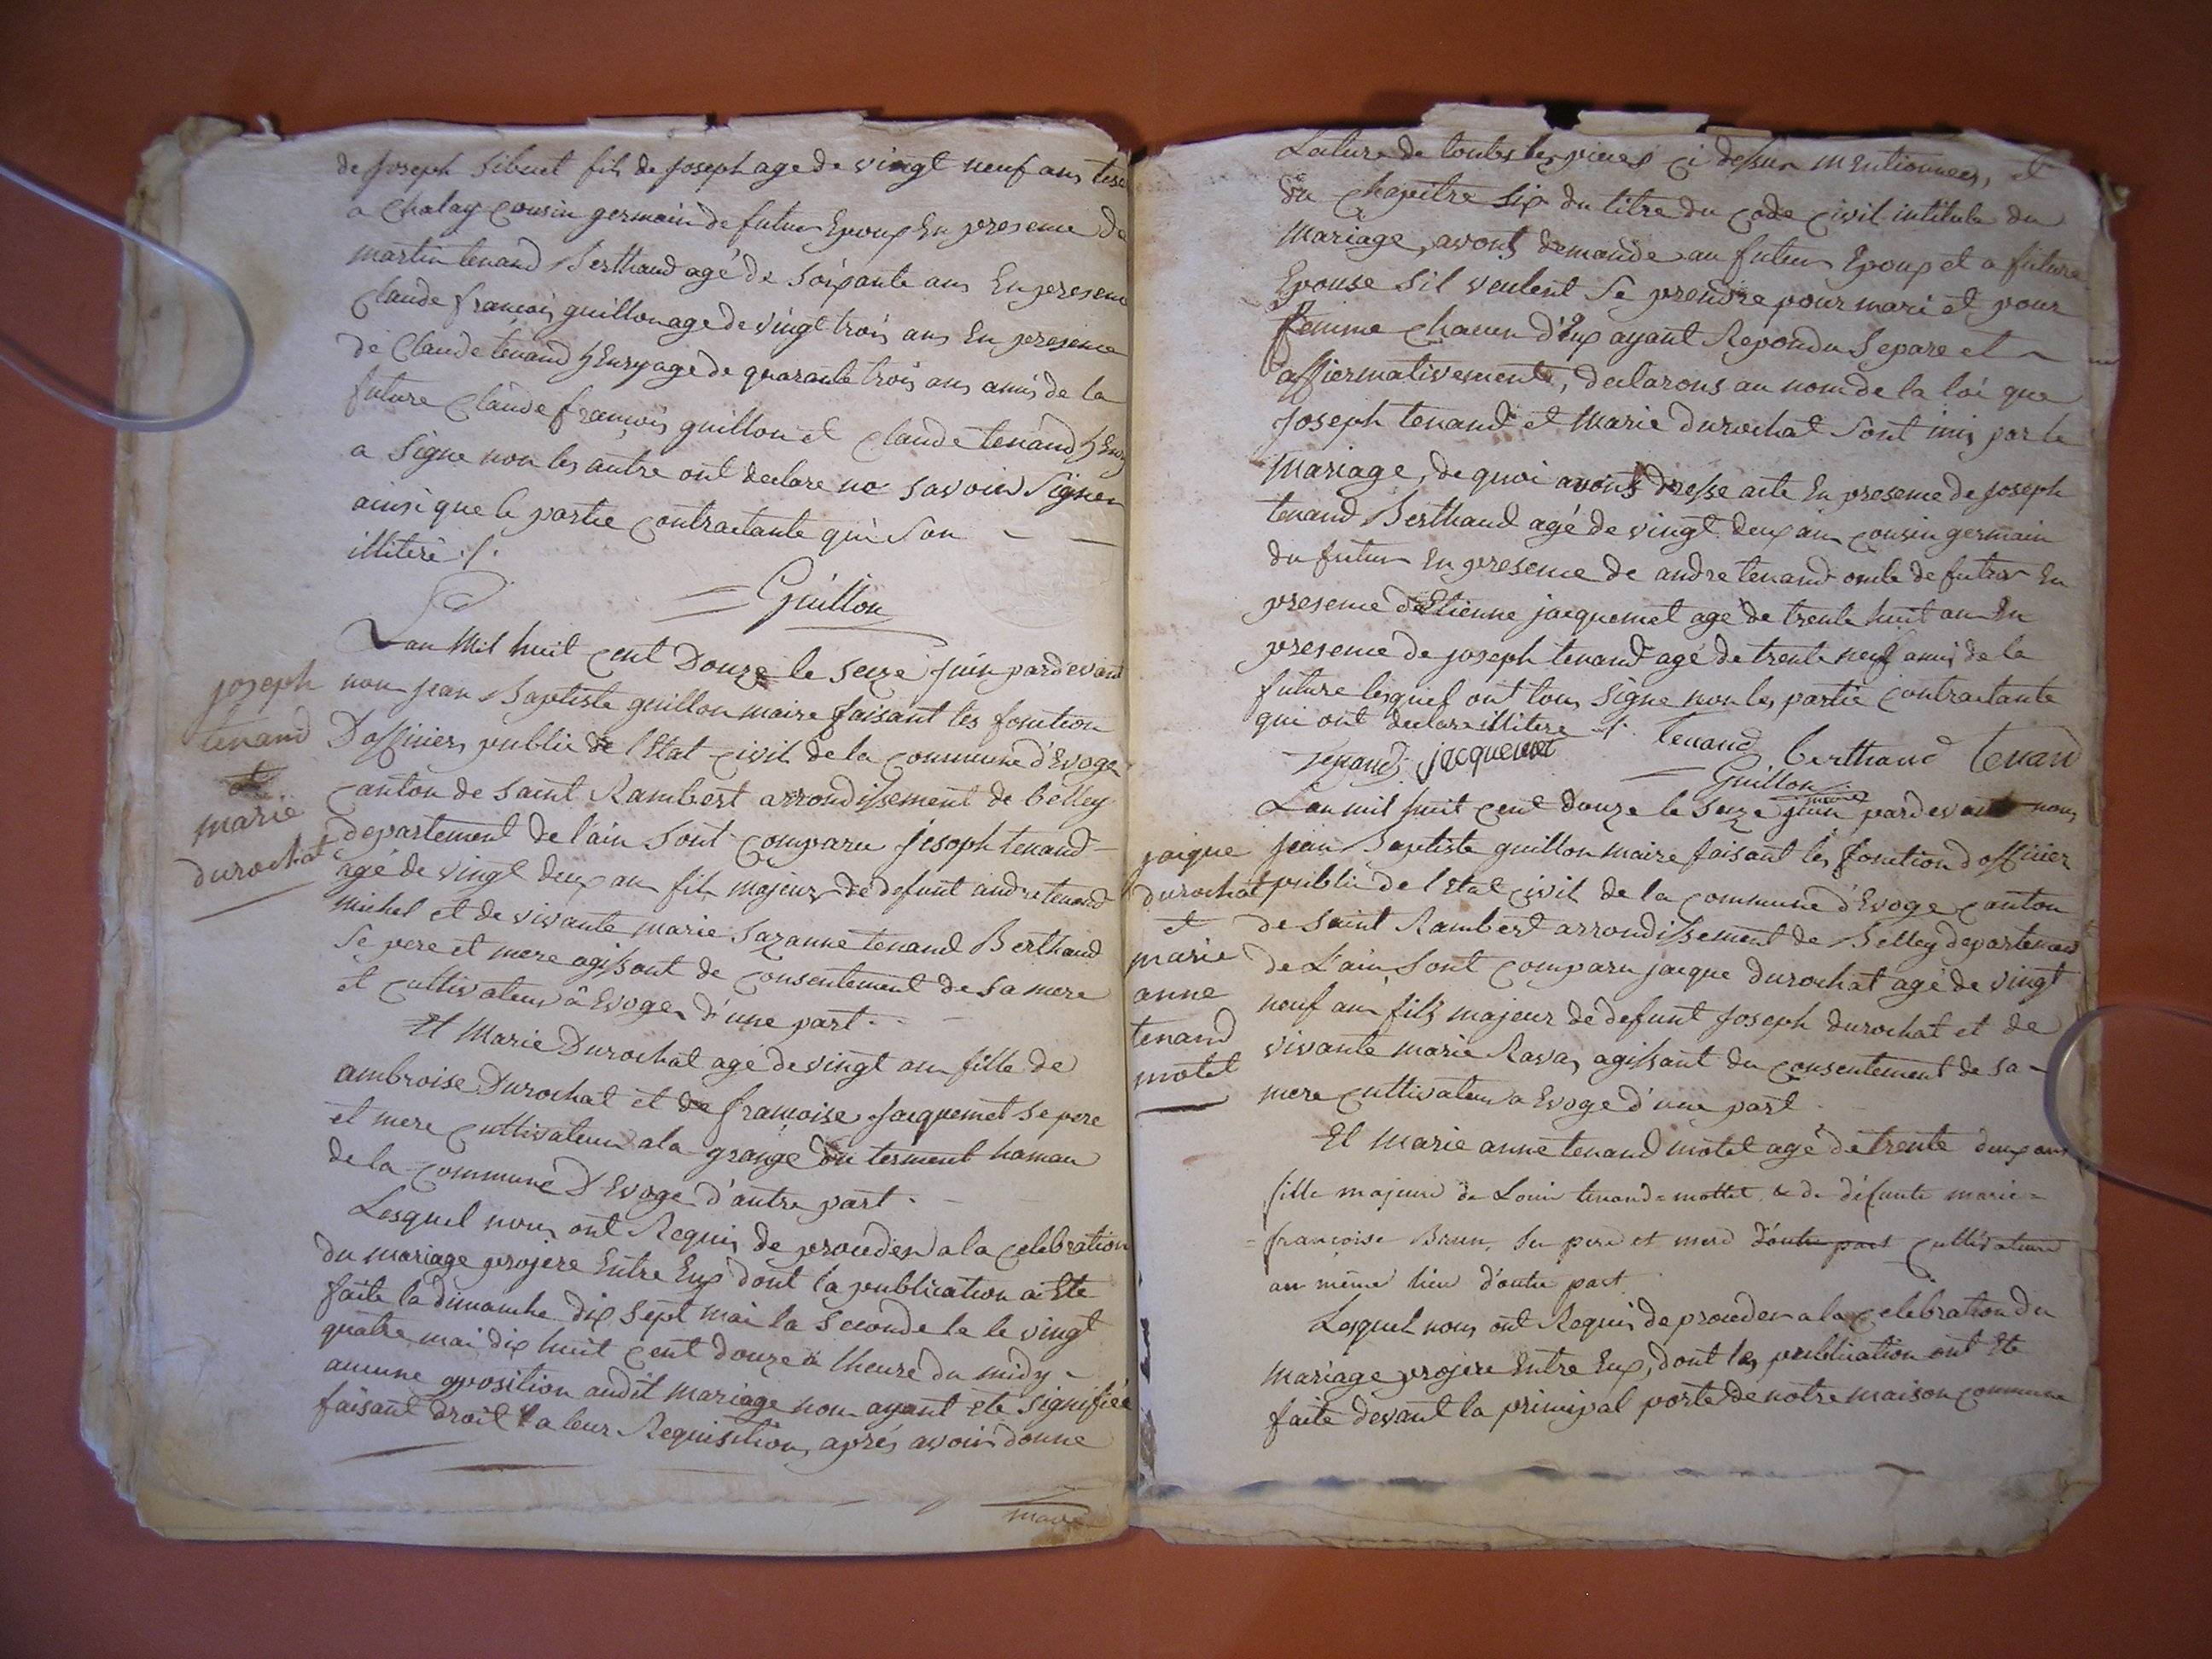 de Joseph Sibuet fils de Joseph age de vingt neuf ans
a Chalay cousin germain de futur Epoux En presence de
martin tenand Berthaud agé de soixante ans En presence
Claude françois guillon age de vingt trois ans En presence
de Claude tenand hEnry age de quarante trois ans amis de la
future Claude françois guillon et Claude tenand hEnry
a Signe non les autre ont declare ne savoir Signer
ainsi que le partie contractante qui Son
illiteré ./.
Guillon
Lan Mil huit cent Douze le seize Juin pardevant
nou jean Baptiste guillon maire faisant les fonction
Dofficier public de l'Etat civil de la commune d'Evoge
canton de saint Rambert arrondissement de belley
departement de l'ain sont comparu Jesoph tenand
agé de vingt deux an fils majeur de defunt andre tenand
michel et de vivante marie Sazanne tenand Berthaud
Se pere et mere agissant de consentement de sa mere
et cultivateur â Evoges d'une part.
joseph
tenand
et
marie
durochat
Et Marie Durochat agé de vingt an fille de
ambroise Durochat et de françoise Jacquemet se pere
et mere cultivateur a la grange du terment hamau
de la commune D'Evoge d'autre part.
Lesquel nous ont Requis de proceder a la celebration
du mariage projere Entre Eux dont la publication a Ete
faite la dimanche dix sept mai la seconde le le vingt
quatre mai dix huit cent douze a lheure du midy
aucune opposition audit mariage non ayant ete signifiée
faisant droit a leur Requisition, aprés avoir donne
Lecture de toutes les pieces ci dessus mentionnees, et
du chapitre six du titre du code civil intitule du
Mariage, avons demandé au futur Epoux et a future
Epouse sil veulent se prendre pour mari et pour
femme chacun d'Eux ayant Repondu Separe et
affiermativement, declarons au nom de la loi que
Joseph tenand et Marie durochat sont unis par le
Mariage, de quoi avons dresse acte En presence de joseph
tenand Berthaud agé de vingt deux an cousin germain
du futur En presence de andre tenand oncle de futur En
presence d'Etienne jacquemet agé de trente huit an En
presence de joseph tenand agé de trente neuf amis de la
future lesquel ont tous signe non les partie contractante
qui ont declare illitere ./. Tenand berthaud tenand
Tenand jacquemet
Guillon
maire
Lan mil huit cent douze le seize juin pardevant nous
jean Baptiste guillon maire faisant les fonction d'officier
public de l'Etat civil de la commune d'Evoge canton
de saint Rambert arrondissement de Belley departement
de L'ain sont comparu jacque durochat agé de vingt
neuf an fils majeur de defunt Joseph durochat et de
vivante marie Ravas agissant du consentement de sa
mere cultivateur a Evoge d'une part
jacque
durochat
et
marie
anne
tenand
motet
Et Marie anne tenand motet agé de trente deux ans
fille majeure de Louis tenand=mottet & de défunte marie=
=françoise Brun, Se pere et mere d'autre part cultivateur
au même lieu d'autre part
Lesquel nous ont Requis de proceder a la celebration du
mariage projere Entre Eux, dont les publication ont Ete
faite devant la principal porte de notre maison commune